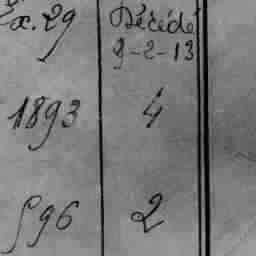 Ex. 29 Décédé
9-2-13
1893 4
896 2